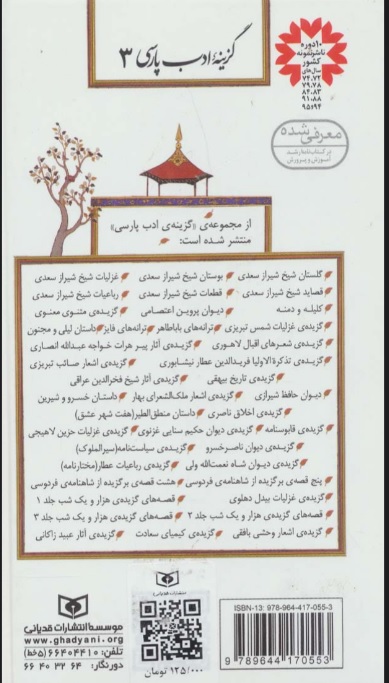 گزینهٔ ادب پارسی ۳
۱۰دوره
ناشر نمونه
کشور
سال‌های
۷۴،۷۲
۷۹،۷۸
۸۴،۸۳
۹۱،۸۸
۹۵،۹۴
معرفی شده
در کتاب‌نامه رشد
آموزش و پرورش
از مجموعه‌ی «گزینه‌ی ادب پارسی»
منتشر شده است:
گلستان شیخ شیراز سعدی بوستان شیخ شیراز سعدی غزلیات شیخ شیراز سعدی
قصاید شیخ شیراز سعدی قطعات شیخ شیراز سعدی رباعیات شیخ شیراز سعدی
کلیله و دمنه دیوان پروین اعتصامی گزیده‌ی مثنوی معنوی
گزیده‌ی غزلیات شمس تبریزی ترانه‌های باباطاهر ترانه‌های فایز داستان لیلی و مجنون
گزیده‌ی شعرهای اقبال لاهوری گزیده‌ی آثار پیر هرات خواجه عبدالله انصاری
گزیده‌ی تذکرة الاولیا فریدالدین عطار نیشابوری گزیده‌ی اشعار صائب تبریزی
گزیده‌ی تاریخ بیهقی گزیده‌ی آثار شیخ فخرالدین عراقی
دیوان حافظ شیرازی گزیده‌ی اشعار ملک‌الشعرای بهار داستان خسرو و شیرین
گزیده‌ی اخلاق ناصری داستان منطق‌الطیر(هفت شهر عشق)
گزیده‌ی قابوسنامه گزیده‌ی دیوان حکیم سنایی غزنوی گزیده‌ی غزلیات حزین لاهیجی
گزیده‌ی دیوان ناصرخسرو گزیده‌ی سیاست‌نامه(سیرالملوک)
گزیده‌ی دیوان شاه نعمت‌الله ولی گزیده‌ی رباعیات عطار(مختارنامه)
پنج قصه‌ی برگزیده از شاهنامه‌ی فردوسی هشت قصه‌ی برگزیده از شاهنامه‌ی فردوسی
گزیده‌ی غزلیات بیدل دهلوی قصه‌های گزیده‌ی هزار و یک شب جلد ۱
قصه‌های گزیده‌ی هزار و یک شب جلد ۲ قصه‌های گزیده‌ی هزار و یک شب جلد ۳
گزیده‌ی اشعار وحشی بافقی گزیده‌ی کیمیای سعادت گزیده‌ی آثار عبید زاکانی
موسسهٔ انتشارات قدیانی
www.ghadyani.org
تلفن: ۶۶۴۰۴۴۱۰ (۵خط)
دورنگار: ۶۶۴۰۳۲۶۴
(انتشارات قدیانی)
۱۲۵/۰۰۰ تومان
ISBN-13: 978-964-417-055-3
9 789644 170553